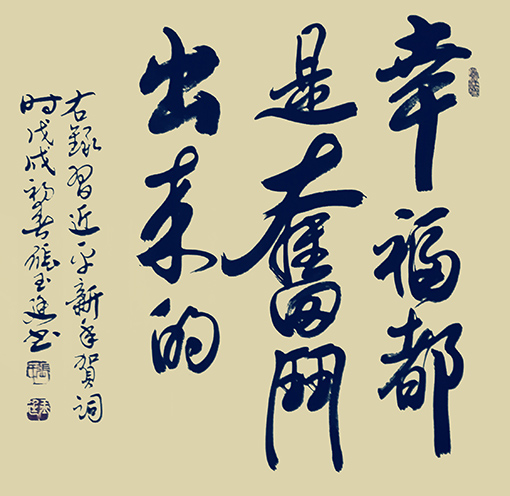 幸福都
是奮鬥
出来的
右録習近平新年賀詞
时戊戌初春張玉书